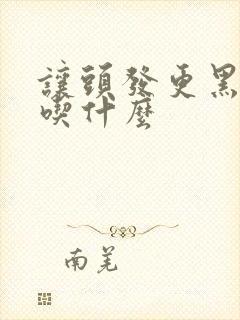 讓頭發更黑
喫什麼
南羌